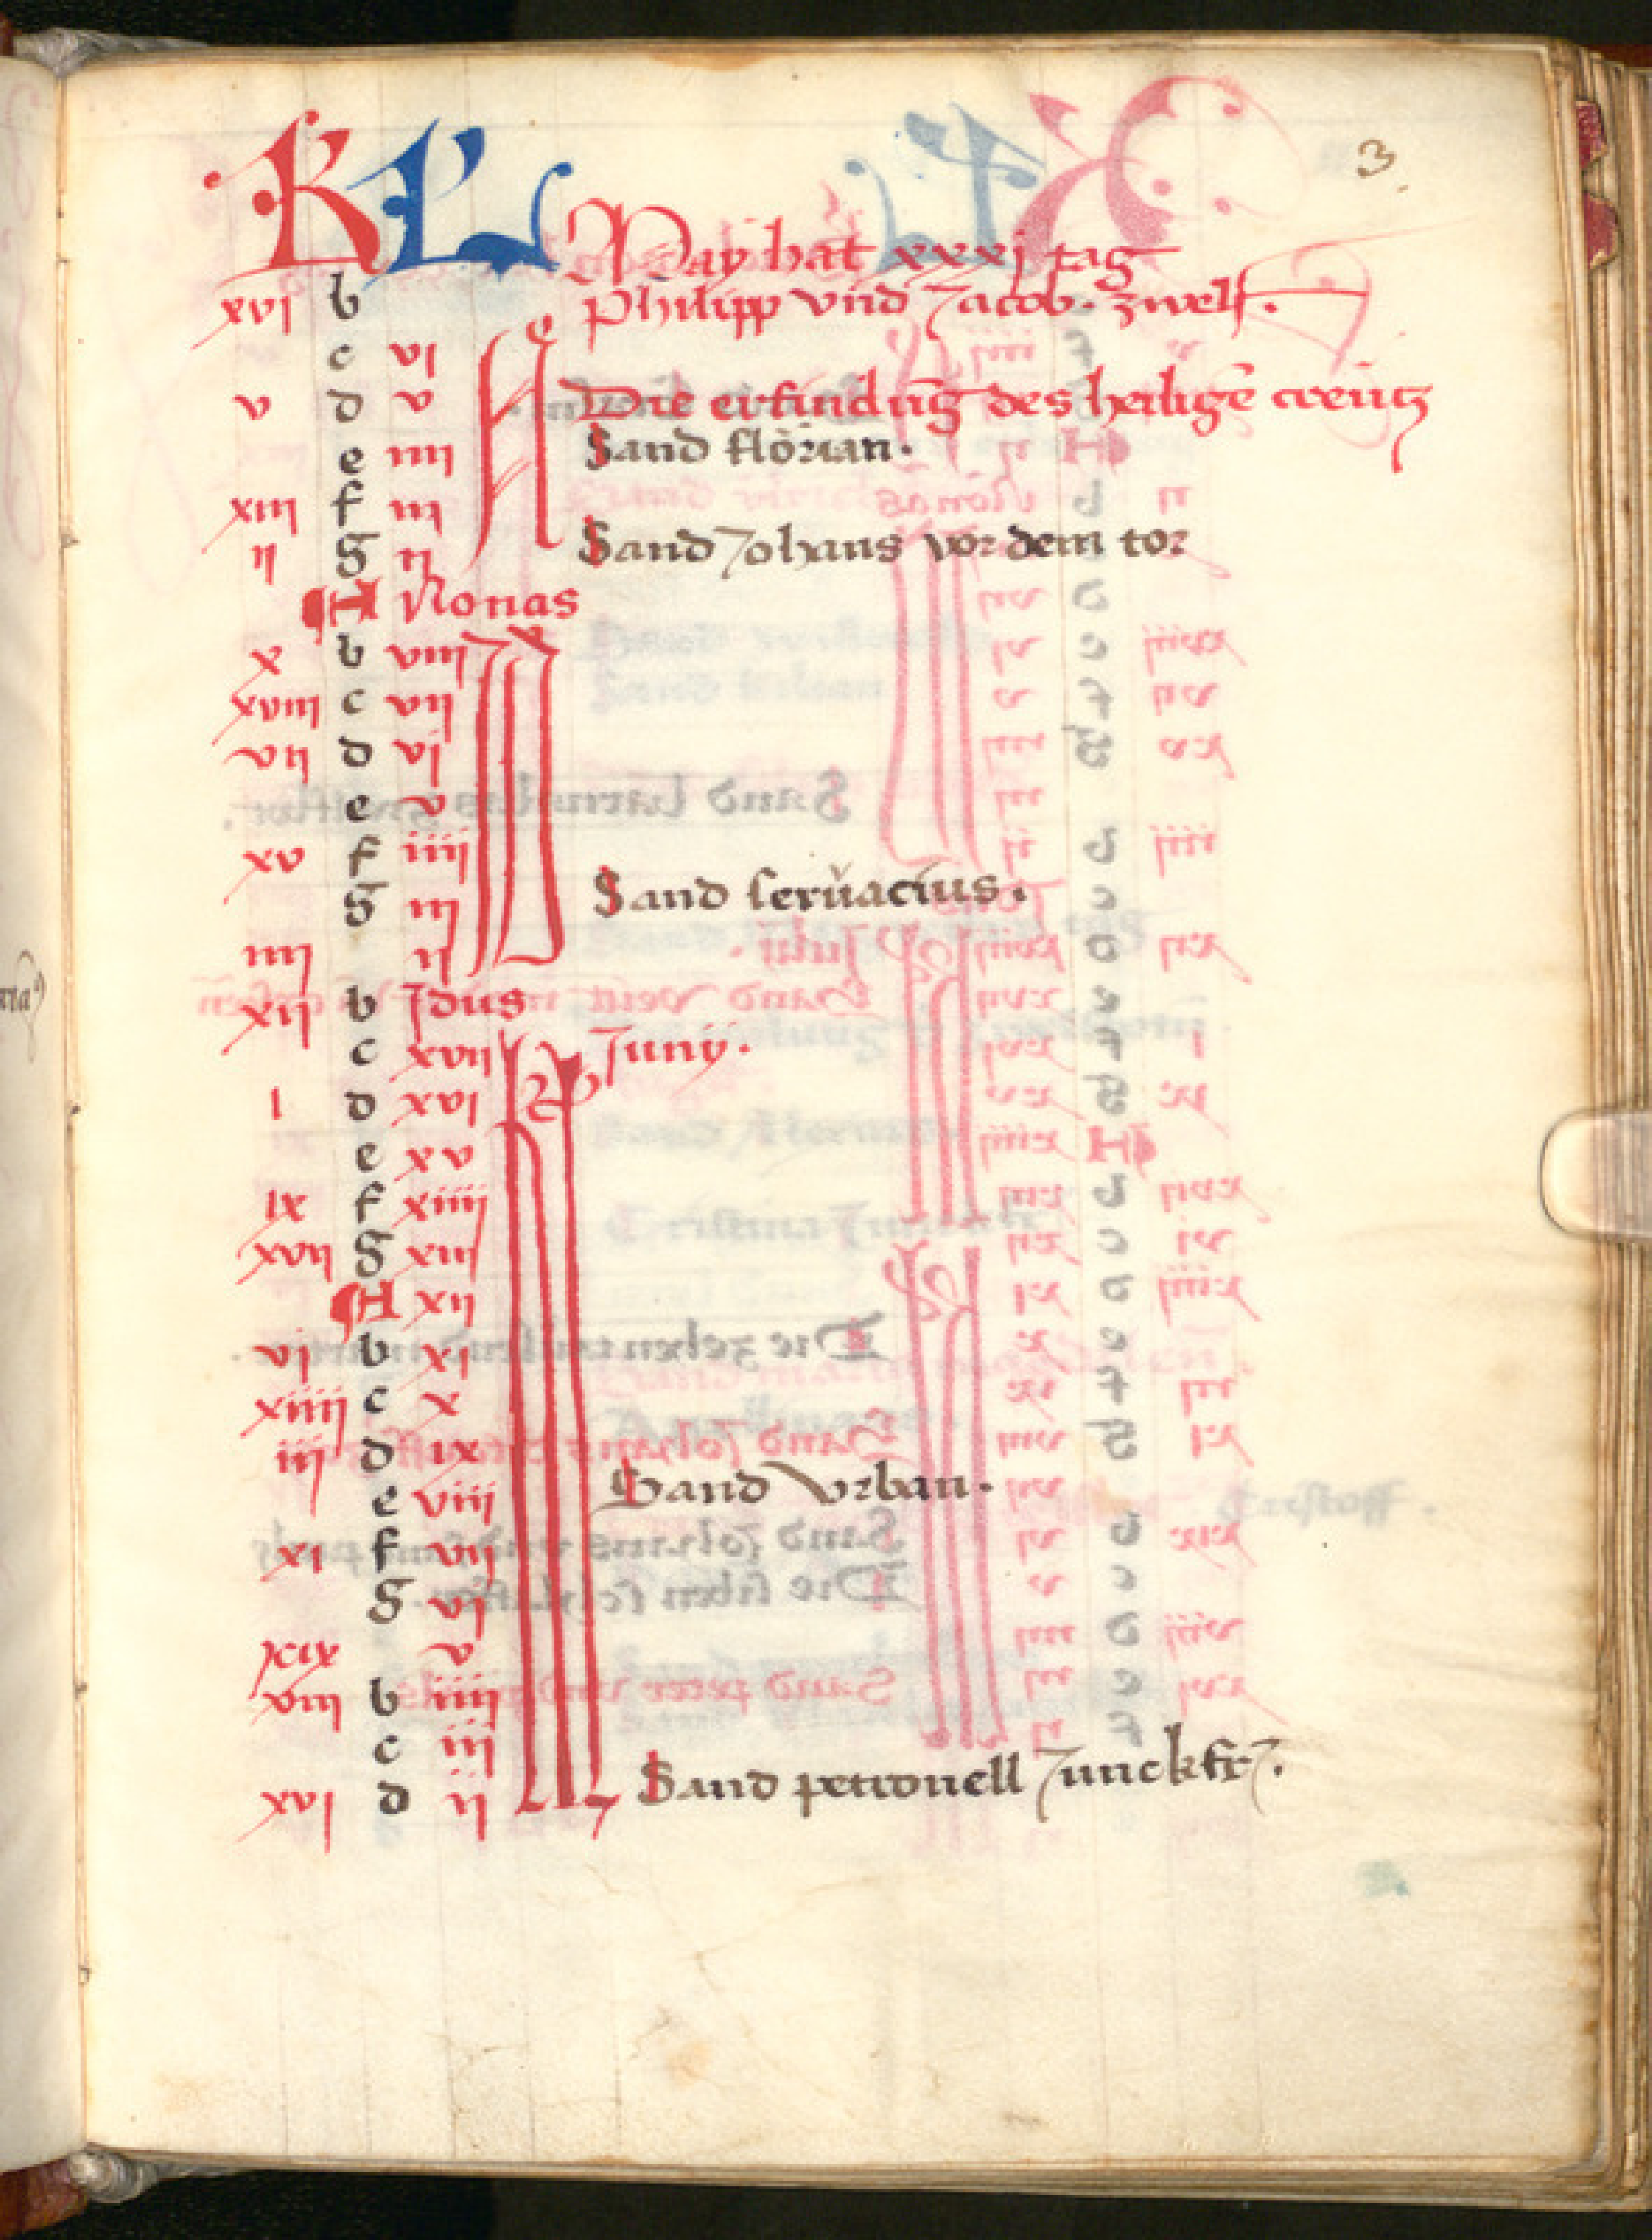 3
KL May hat xxxj tag
xvj b Philipp vnd Jacob zwelf.
c vj
v d v Die erfindūg des heiligē creücz
e iiij Sand florian.
xiij f iij
ij g ij Sand Johans vor dem tor
A Nonas
x b viij
xviij c vij
vij d vj
e v
xv f iiij
g iij Sand seruacius.
iiij ij
xij b Jdus
c xvij Junij.
j d xvj
e xv
ix f xiiij
xvij g xiij
A xij
vj b xj
xiiij c x
iij d ix
e viij Sand vrban.
xj f vij
g vj
xix v
viij b iiij
c iij
xvj d ij Sand petronell Junckfr.